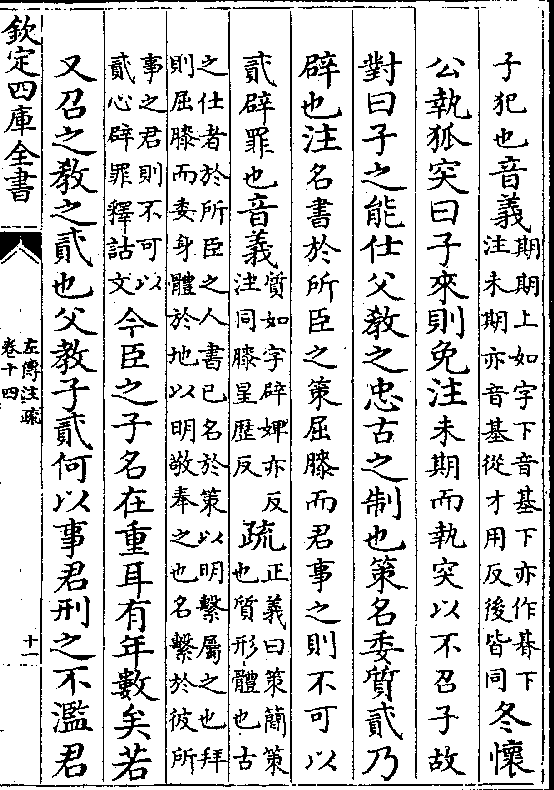 子犯也音義期期上如字下音基下亦作朞下注未期亦音基從才用反後皆同冬懷
公執狐突曰子來則免注未期而執突以不召子故
對曰子之能仕父教之忠古之制也策名委質貳乃
辟也注名書於所臣之策屈膝而君事之則不可以
貳辟罪也音義質如字辟婢亦反注同膝星歷反疏正義曰策簡策也質形體也古
之仕者於所臣之人書已名於策以明繫屬之也拜
則屈膝而委身體於地以明敬奉之也名繫於彼所
事之君則不可以貳心辟罪釋詁文今臣之子名在重耳有年數矣若
又召之教之貳也父教子貳何以事君刑之不濫君
欽定四庫全書
左傳注疏
卷十四
十一